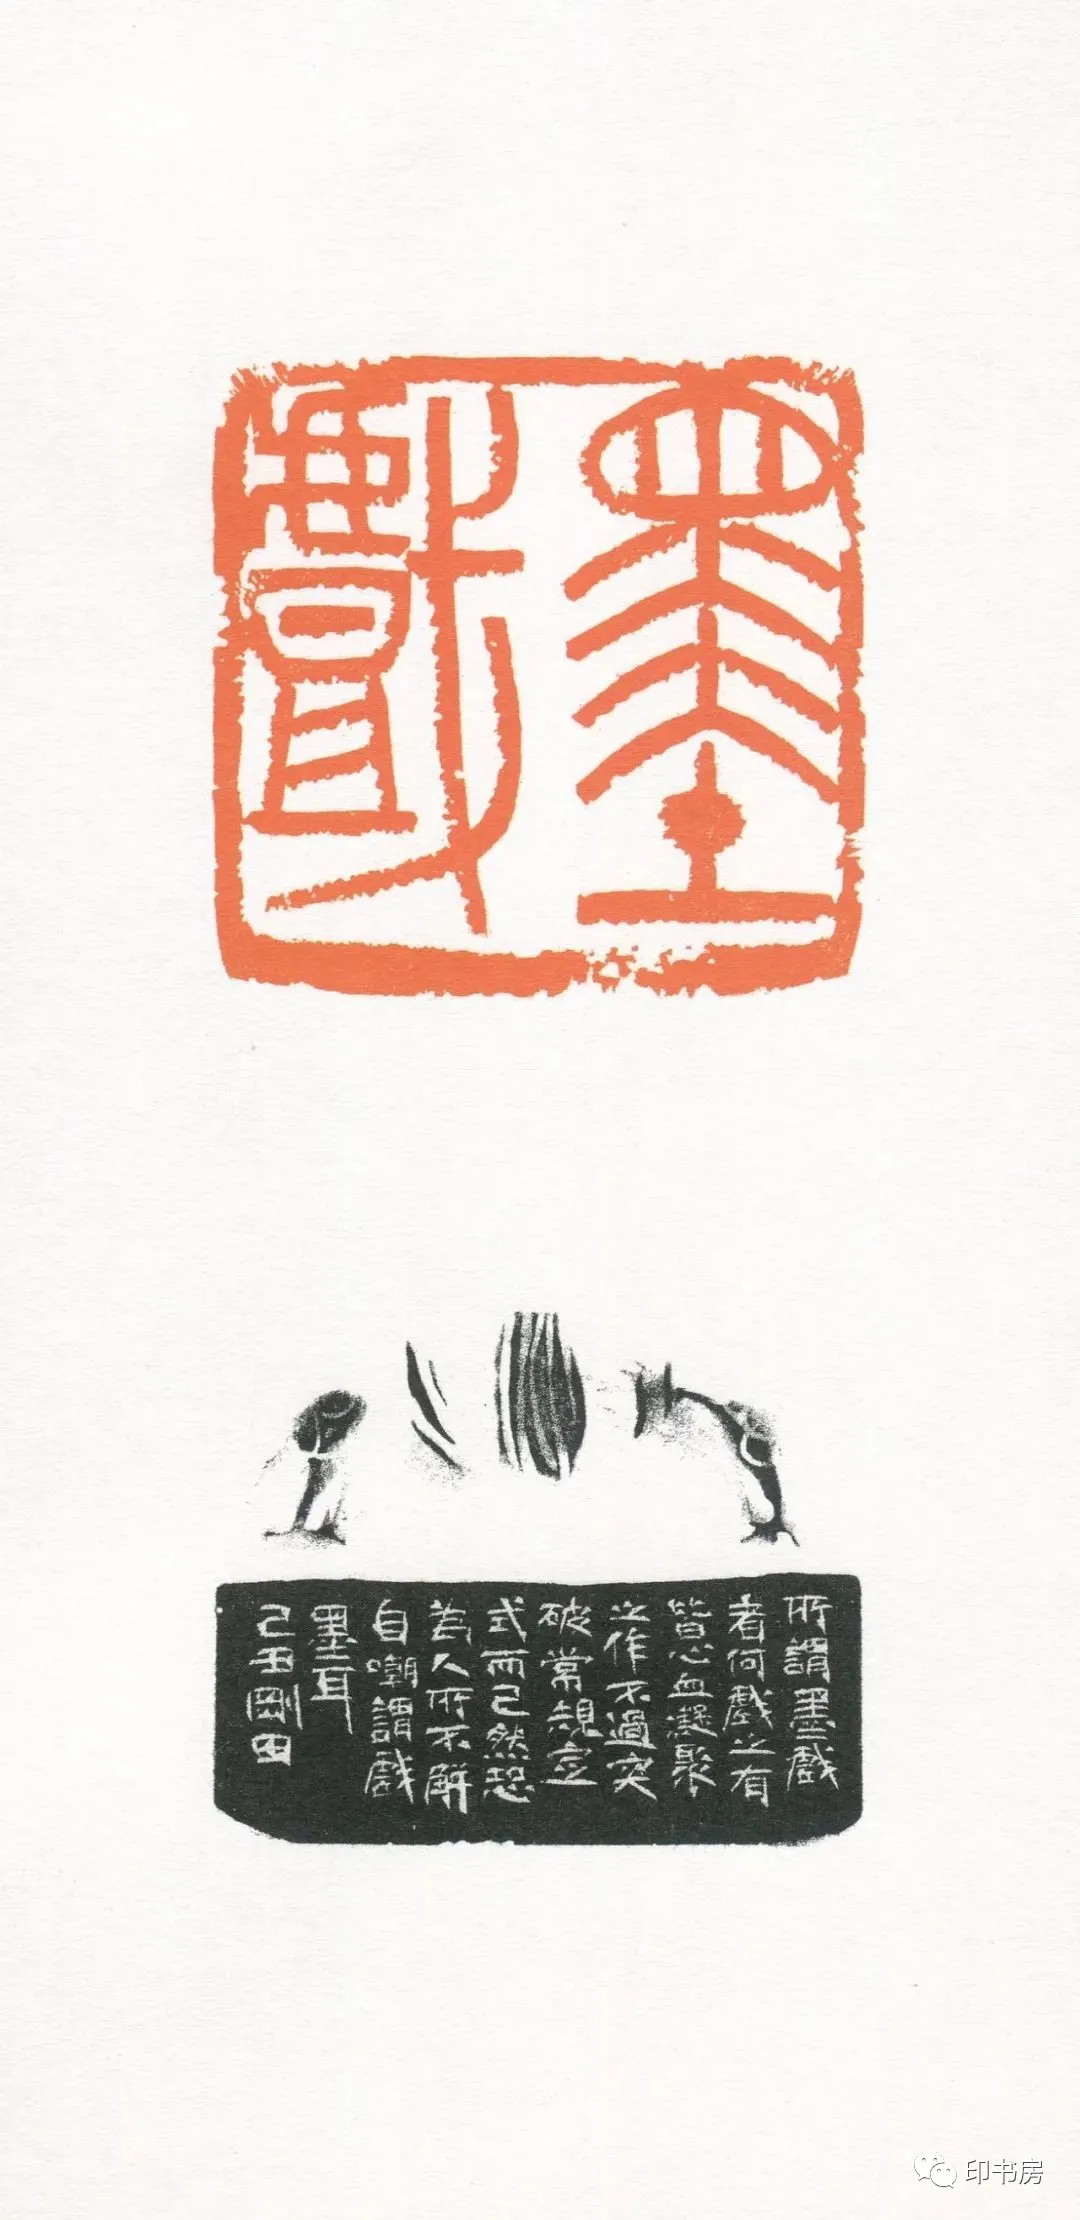 墨戲
所謂墨戲
者何戲之有
皆心血凝聚
之作不過突
破常規定
式而已然恐
爲人所不解
自嘲謂戲
墨耳
己丑剛田
印书房